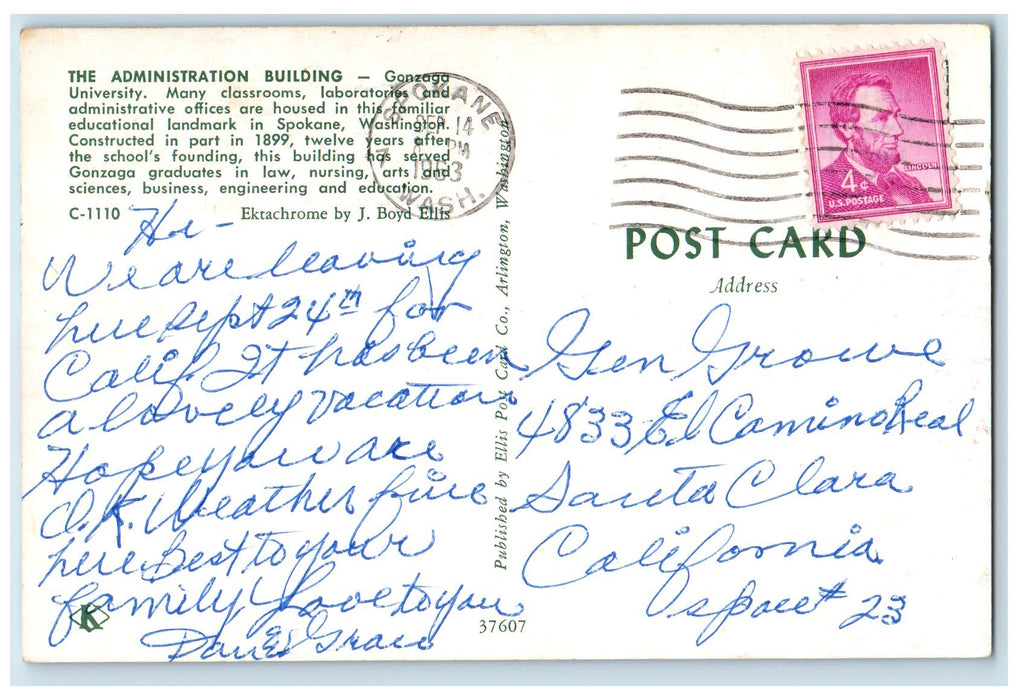 THE ADMINISTRATION BUILDING — Gonzaga
University. Many classrooms, laboratories and
administrative offices are housed in this familiar
educational landmark in Spokane, Washington.
Constructed in part in 1899, twelve years after
the school's founding, this building has served
Gonzaga graduates in law, nursing, arts and
sciences, business, engineering and education.
C-1110 Ektachrome by J. Boyd Ellis
SPOKANE
SEP 14
PM
1963
WASH.
Hi -
We are leaving
here Sept 24th for
Calif. It has been
a lovely vacation
Hope you are
O.K. Weather fine
here Best to your
family Love to you
Dan & Grace
K
Published by Ellis Post Card Co., Arlington, Washington
37607
LINCOLN
4¢
U.S. POSTAGE
POST CARD
Address
Gen Growe
4833 El Camino Real
Santa Clara
California
space # 23